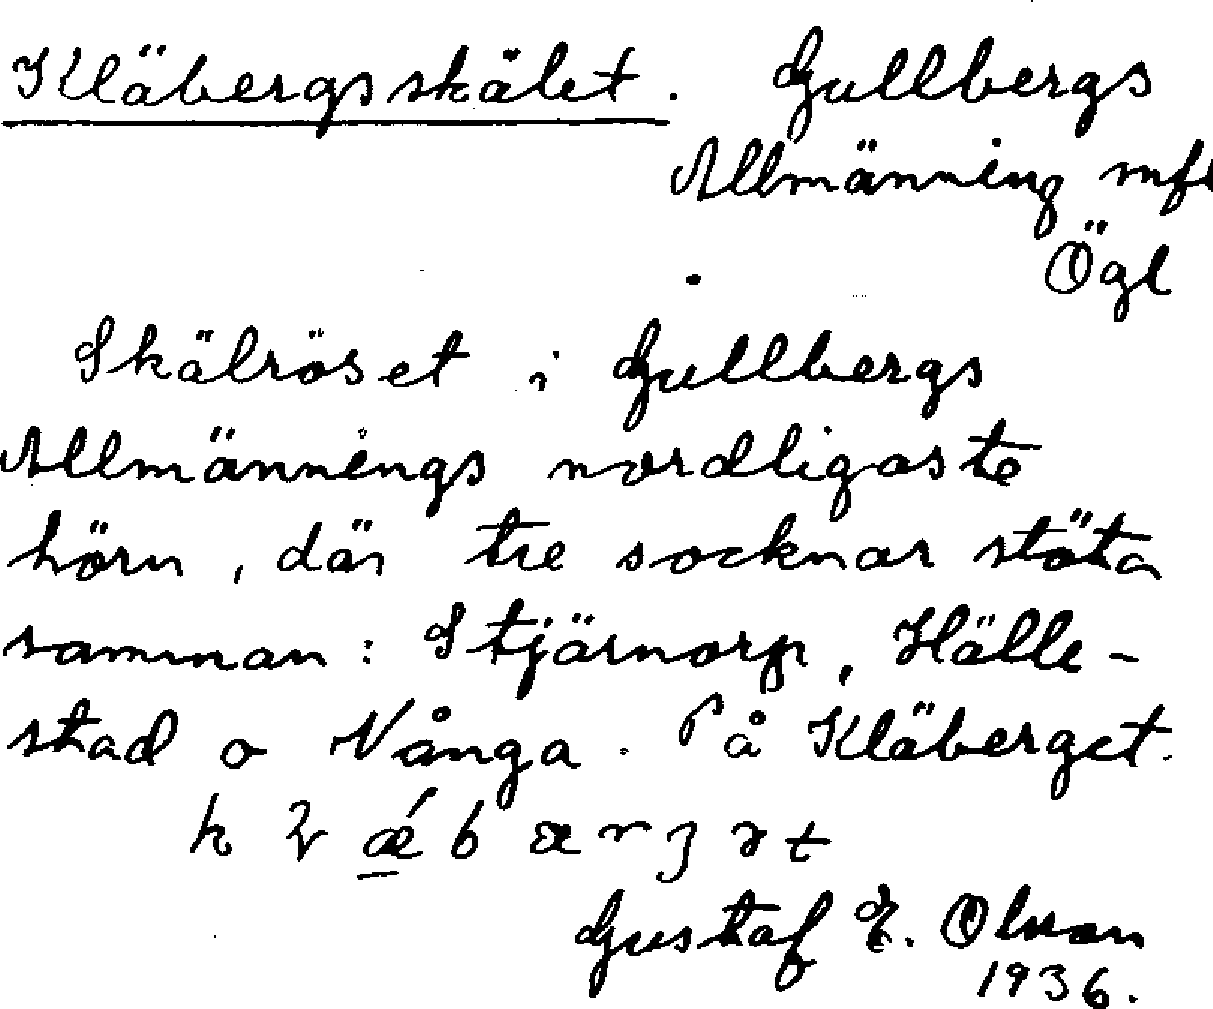 Kläbergsskälet. Gullbergs
Allmänning mfl
Ögl
Skälröset i Gullbergs
Allmännings nordligaste
hörn, där tre socknar stöta
samman: Stjärnorp, Hälle-
stad o Vånga. På Kläberget.
Gustaf E. Olsson
1936.